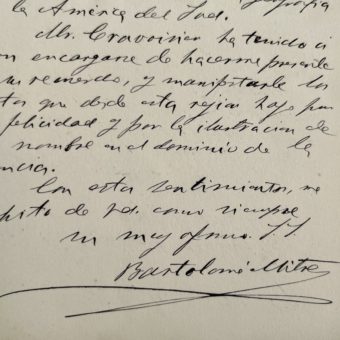 la América del Sud.
Mr. Cravoisier ha tenido á
encargarse de hacerme presente
su recuerdo, y manifestarle los
tos que desde esta region hago por
felicidad y por la ilustracion de
nombre en el dominio de la
ncia.
Con estos sentimientos, me
pito de Vd. como siempre
su muy afmo. S. S.
Bartolomé Mitre